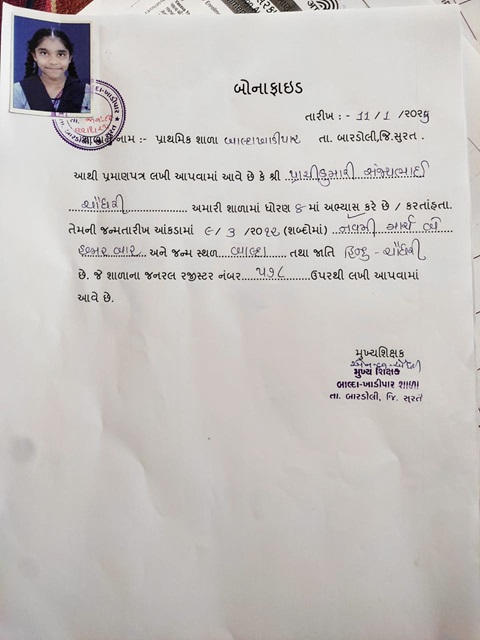 બોનાફાઇડ
તારીખ : - 11 / 1 / ૨૦૨૬
નામ :- પ્રાથમિક શાળા બાલ્દાખાડીપાર તા. બારડોલી,જિ.સુરત .
આથી પ્રમાણપત્ર લખી આપવામાં આવે છે કે શ્રી પ્રાચીકુમારી સંજયભાઈ
ચૌધરી અમારી શાળામાં ધોરણ ૪-માં અભ્યાસ કરે છે / કરતાંહતા.
તેમની જન્મતારીખ આંકડામાં ૯/ 3 /૨૦૧૨ (શબ્દોમાં) નવમી માર્ચ બે
હજાર બાર અને જન્મ સ્થળ બાલ્દા તથા જાતિ હિન્દુ - ચૌધરી
છે. જે શાળાના જનરલ રજીસ્ટર નંબર ૫૭૮ ઉપરથી લખી આપવામાં
આવે છે.
મુખ્યશિક્ષક
મુખ્ય શિક્ષક
બાલ્દા-ખાડીપાર શાળા
તા. બારડોલી, જિ. સુરત